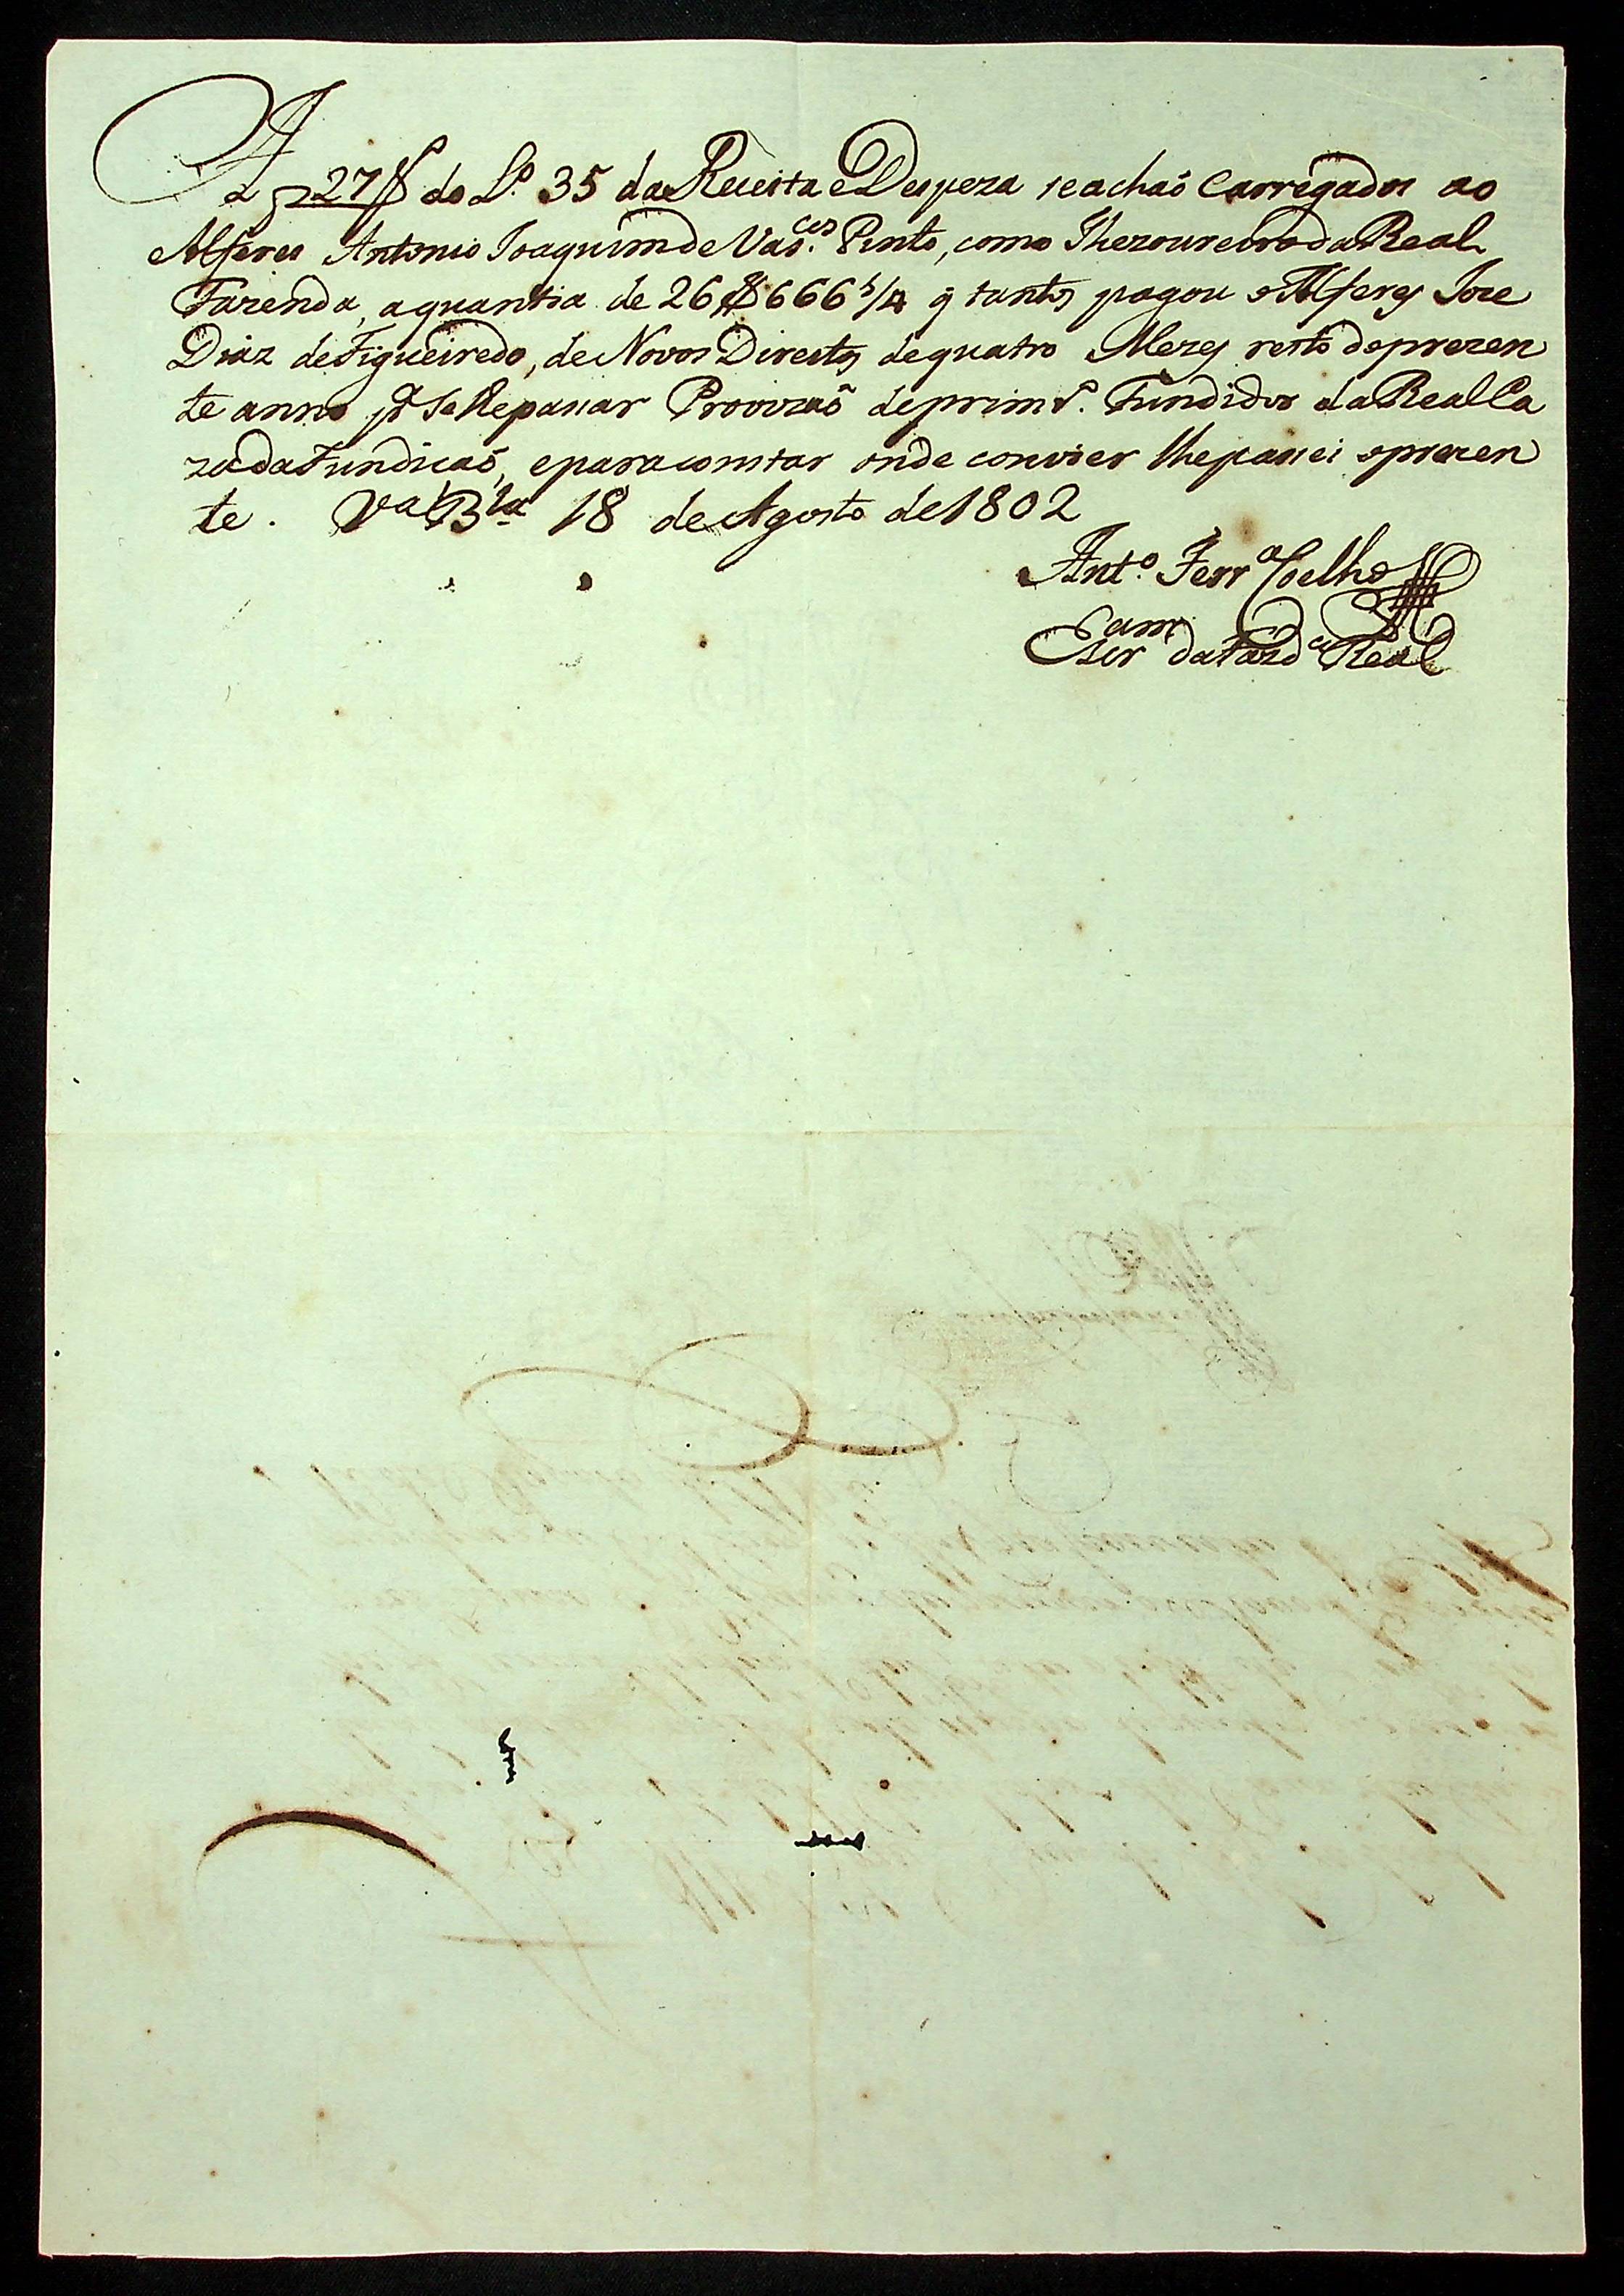 A f 27 V do L.º 35 da Receita e Despeza se achaõ Carregados ao
Alferes Antonio Joaquim de Vas.ces Pinto, como Thezoureiro da Real
Fazenda, a quantia de 26$666 3/4 q̃ tantos pagou o Alferes Joze
Diaz de Figueiredo, de Novos Direitos de quatro Mezes resto do prezen
te anno pª Se lhe passar Provizaõ de prim.º Fundidor da Real Ca
za da Fundicaõ, e para constar onde convier lhe passei o prezen
te. Va Bla 18 de Agosto de 1802
Ant.º Ferr.a Coelho
Escr da Fazd.a Real